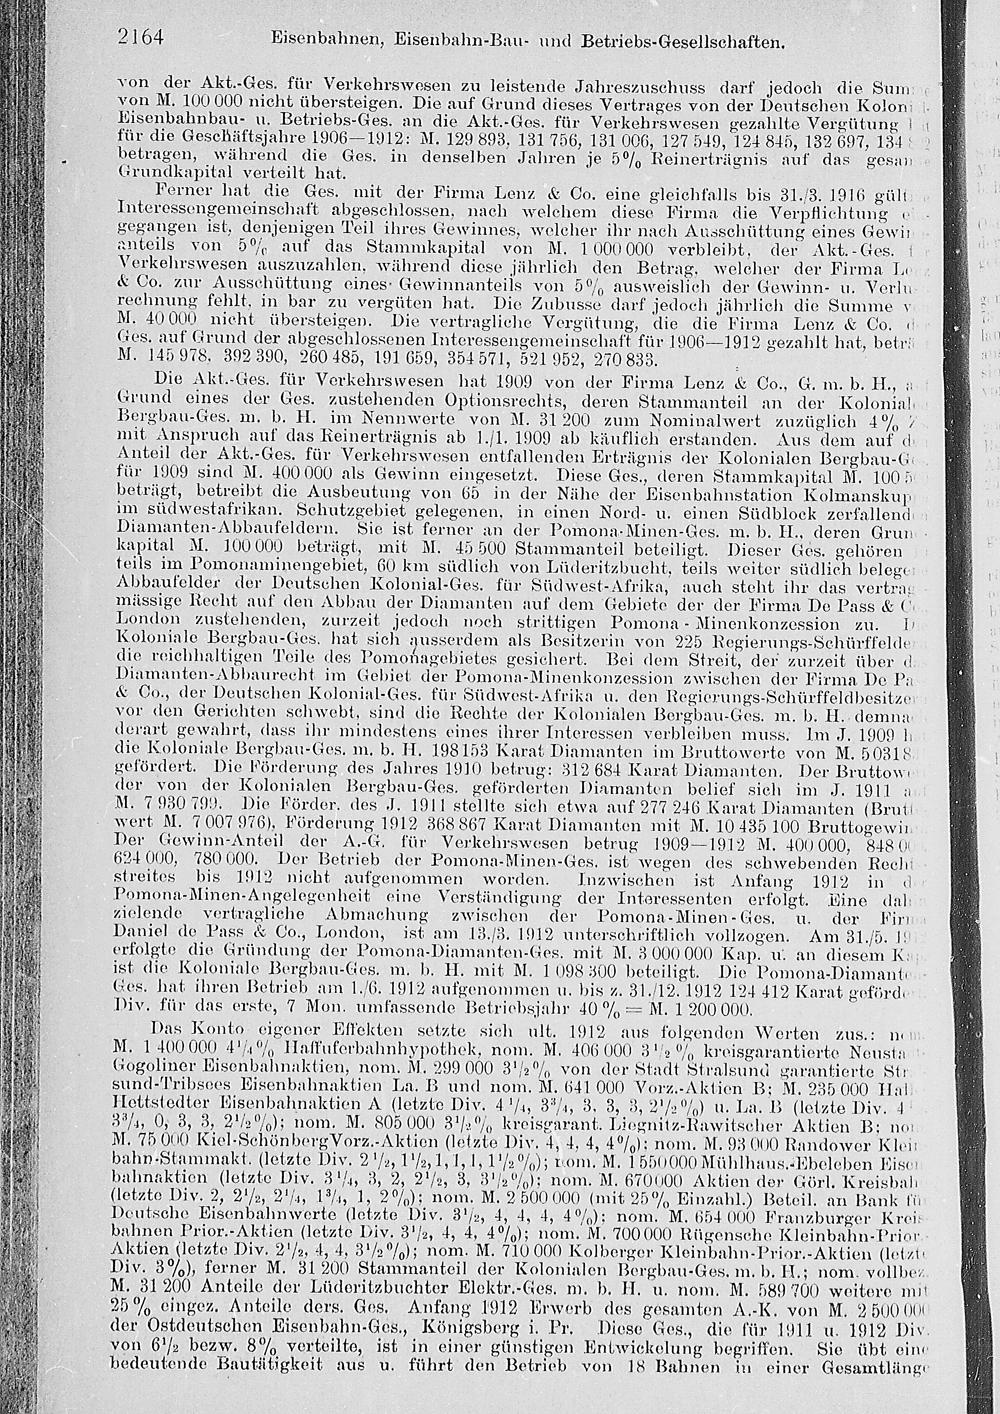 2164 Eisenbahnen, Eisenbahn-Bau- und Betriebs-Gesellschaften.
von der Akt.-Ges. für Verkehrswesen zu leistende Jahreszuschuss darf jedoch die Sum
von M. 100 000 nicht übersteigen. Die auf Grund dieses Vertrages von der Deutschen Koloni
Eisenbahnbau- u. Betriebs-Ges. an die Akt.-Ges. für Verkehrswesen gezahlte Vergütung
für die Geschäftsjahre 1906—1912: M. 129 893, 131 756, 131 006, 127 549, 124 845, 132 697, 134
betragen, während die Ges. in denselben Jahren je 5% Reinerträgnis auf das gesam
Grundkapital verteilt hat.
Ferner hat die Ges. mit der Firma Lenz & Co. eine gleichfalls bis 31./3. 1916 gült
Interessengemeinschaft abgeschlossen, nach welchem diese Firma die Verpflichtung
gegangen ist, denjenigen Teil ihres Gewinnes, welcher ihr nach Ausschüttung eines Gewin
anteils von 5% auf das Stammkapital von M. 1 000 000 verbleibt, der Akt.-Ges. f
Verkehrswesen auszuzahlen, während diese jährlich den Betrag, welcher der Firma Le
& Co. zur Ausschüttung eines Gewinnanteils von 5% ausweislich der Gewinn- u. Verlu
rechnung fehlt, in bar zu vergüten hat. Die Zubusse darf jedoch jährlich die Summe v
M. 40 000 nicht übersteigen. Die vertragliche Vergütung, die die Firma Lenz & Co. d
Ges. auf Grund der abgeschlossenen Interessengemeinschaft für 1906—1912 gezahlt hat, beträ
M. 145 978, 392 390, 260 485, 191 659, 354 571, 521 952, 270 833.
Die Akt.-Ges. für Verkehrswesen hat 1909 von der Firma Lenz & Co., G. m. b. H., a
Grund eines der Ges. zustehenden Optionsrechts, deren Stammanteil an der Kolonial
Bergbau-Ges. m. b. H. im Nennwerte von M. 31 200 zum Nominalwert zuzüglich 4% Z
mit Anspruch auf das Reinerträgnis ab 1./1. 1909 ab käuflich erstanden. Aus dem auf d
Anteil der Akt.-Ges. für Verkehrswesen entfallenden Erträgnis der Kolonialen Bergbau-G
für 1909 sind M. 400 000 als Gewinn eingesetzt. Diese Ges., deren Stammkapital M. 100 5
beträgt, betreibt die Ausbeutung von 65 in der Nähe der Eisenbahnstation Kolmanskup
im südwestafrikan. Schutzgebiet gelegenen, in einen Nord- u. einen Südblock zerfallend
Diamanten-Abbaufeldern. Sie ist ferner an der Pomona-Minen-Ges. m. b. H., deren Grun
kapital M. 100 000 beträgt, mit M. 45 500 Stammanteil beteiligt. Dieser Ges. gehören
teils im Pomonaminengebiet, 60 km südlich von Lüderitzbucht, teils weiter südlich belege
Abbaufelder der Deutschen Kolonial-Ges. für Südwest-Afrika, auch steht ihr das vertrag
mässige Recht auf den Abbau der Diamanten auf dem Gebiete der der Firma De Pass & C
London zustehenden, zurzeit jedoch noch strittigen Pomona-Minenkonzession zu. D
Koloniale Bergbau-Ges. hat sich ausserdem als Besitzerin von 225 Regierungs-Schürffelde
die reichhaltigen Teile des Pomonagebietes gesichert. Bei dem Streit, der zurzeit über d
Diamanten-Abbaurecht im Gebiet der Pomona-Minenkonzession zwischen der Firma De Pa
& Co., der Deutschen Kolonial-Ges. für Südwest-Afrika u. den Regierungs-Schürffeldbesitze
vor den Gerichten schwebt, sind die Rechte der Kolonialen Bergbau-Ges. m. b. H. demna
derart gewahrt, dass ihr mindestens eines ihrer Interessen verbleiben muss. Im J. 1909 h
die Koloniale Bergbau-Ges. m. b. H. 198 153 Karat Diamanten im Bruttowerte von M. 5 031 8
gefördert. Die Förderung des Jahres 1910 betrug: 312 684 Karat Diamanten. Der Bruttow
der von der Kolonialen Bergbau-Ges. geförderten Diamanten belief sich im J. 1911 a
M. 7 930 799. Die Förder. des J. 1911 stellte sich etwa auf 277 246 Karat Diamanten (Brutt
wert M. 7 007 976), Förderung 1912 368 867 Karat Diamanten mit M. 10 435 100 Bruttogewin
Der Gewinn-Anteil der A.-G. für Verkehrswesen betrug 1909—1912 M. 400 000, 848 0
624 000, 780 000. Der Betrieb der Pomona-Minen-Ges. ist wegen des schwebenden Recht
streites bis 1912 nicht aufgenommen worden. Inzwischen ist Anfang 1912 in d
Pomona-Minen-Angelegenheit eine Verständigung der Interessenten erfolgt. Eine dah
zielende vertragliche Abmachung zwischen der Pomona-Minen-Ges. u. der Firm
Daniel de Pass & Co., London, ist am 13./3. 1912 unterschriftlich vollzogen. Am 31./5. 191
erfolgte die Gründung der Pomona-Diamanten-Ges. mit M. 3 000 000 Kap. u. an diesem Ka
ist die Koloniale Bergbau-Ges. m. b. H. mit M. 1 098 300 beteiligt. Die Pomona-Diamant
Ges. hat ihren Betrieb am 1./6. 1912 aufgenommen u. bis z. 31./12. 1912 124 412 Karat geförde
Div. für das erste, 7 Mon. umfassende Betriebsjahr 40% = M. 1 200 000.
Das Konto eigener Effekten setzte sich ult. 1912 aus folgenden Werten zus.: nom
M. 1 400 000 4¼% Haffuferbahnhypothek, nom. M. 406 000 3½% kreisgarantierte Neusta
Gogoliner Eisenbahnaktien, nom. M. 299 000 3½% von der Stadt Stralsund garantierte Str
sund-Tribsees Eisenbahnaktien La. B und nom. M. 641 000 Vorz.-Aktien B; M. 235 000 Hal
Hettstedter Eisenbahnaktien A (letzte Div. 4¼, 3¾, 3, 3, 3, 2½%) u. La. B (letzte Div. 4
3¾, 0, 3, 3, 2½%); nom. M. 805 000 3½% kreisgarant. Liegnitz-Rawitscher Aktien B; no
M. 75 000 Kiel-Schönberg Vorz.-Aktien (letzte Div. 4, 4, 4, 4%); nom. M. 93 000 Randower Klei
bahn-Stammakt. (letzte Div. 2½, 1½, 1, 1, 1, 1½%); nom. M. 1 550 000 Mühlhaus.-Ebeleben Eise
bahnaktien (letzte Div. 3¼, 3, 2, 2½, 3, 3½%); nom. M. 670 000 Aktien der Görl. Kreisbah
(letzte Div. 2, 2½, 2¼, 1¾, 1, 2%); nom. M. 2 500 000 (mit 25% Einzahl.) Beteil. an Bank fü
Deutsche Eisenbahnwerte (letzte Div. 3½, 4, 4, 4, 4%); nom. M. 654 000 Franzburger Kreis
bahnen Prior.-Aktien (letzte Div. 3½, 4, 4, 4%); nom. M. 700 000 Rügensche Kleinbahn-Prior.-
Aktien (letzte Div. 2½, 4, 4, 3½%); nom. M. 710 000 Kolberger Kleinbahn-Prior.-Aktien (letzte
Div. 3%), ferner M. 31 200 Stammanteil der Kolonialen Bergbau-Ges. m. b. H.; nom. vollbez.
M. 31 200 Anteile der Lüderitzbuchter Elektr.-Ges. m. b. H. u. nom. M. 589 700 weitere mit
25% eingez. Anteile ders. Ges. Anfang 1912 Erwerb des gesamten A.-K. von M. 2 500 000
der Ostdeutschen Eisenbahn-Ges., Königsberg i. Pr. Diese Ges., die für 1911 u. 1912 Div.
von 6½ bezw. 8% verteilte, ist in einer günstigen Entwickelung begriffen. Sie übt eine
bedeutende Bautätigkeit aus u. führt den Betrieb von 18 Bahnen in einer Gesamtlänge